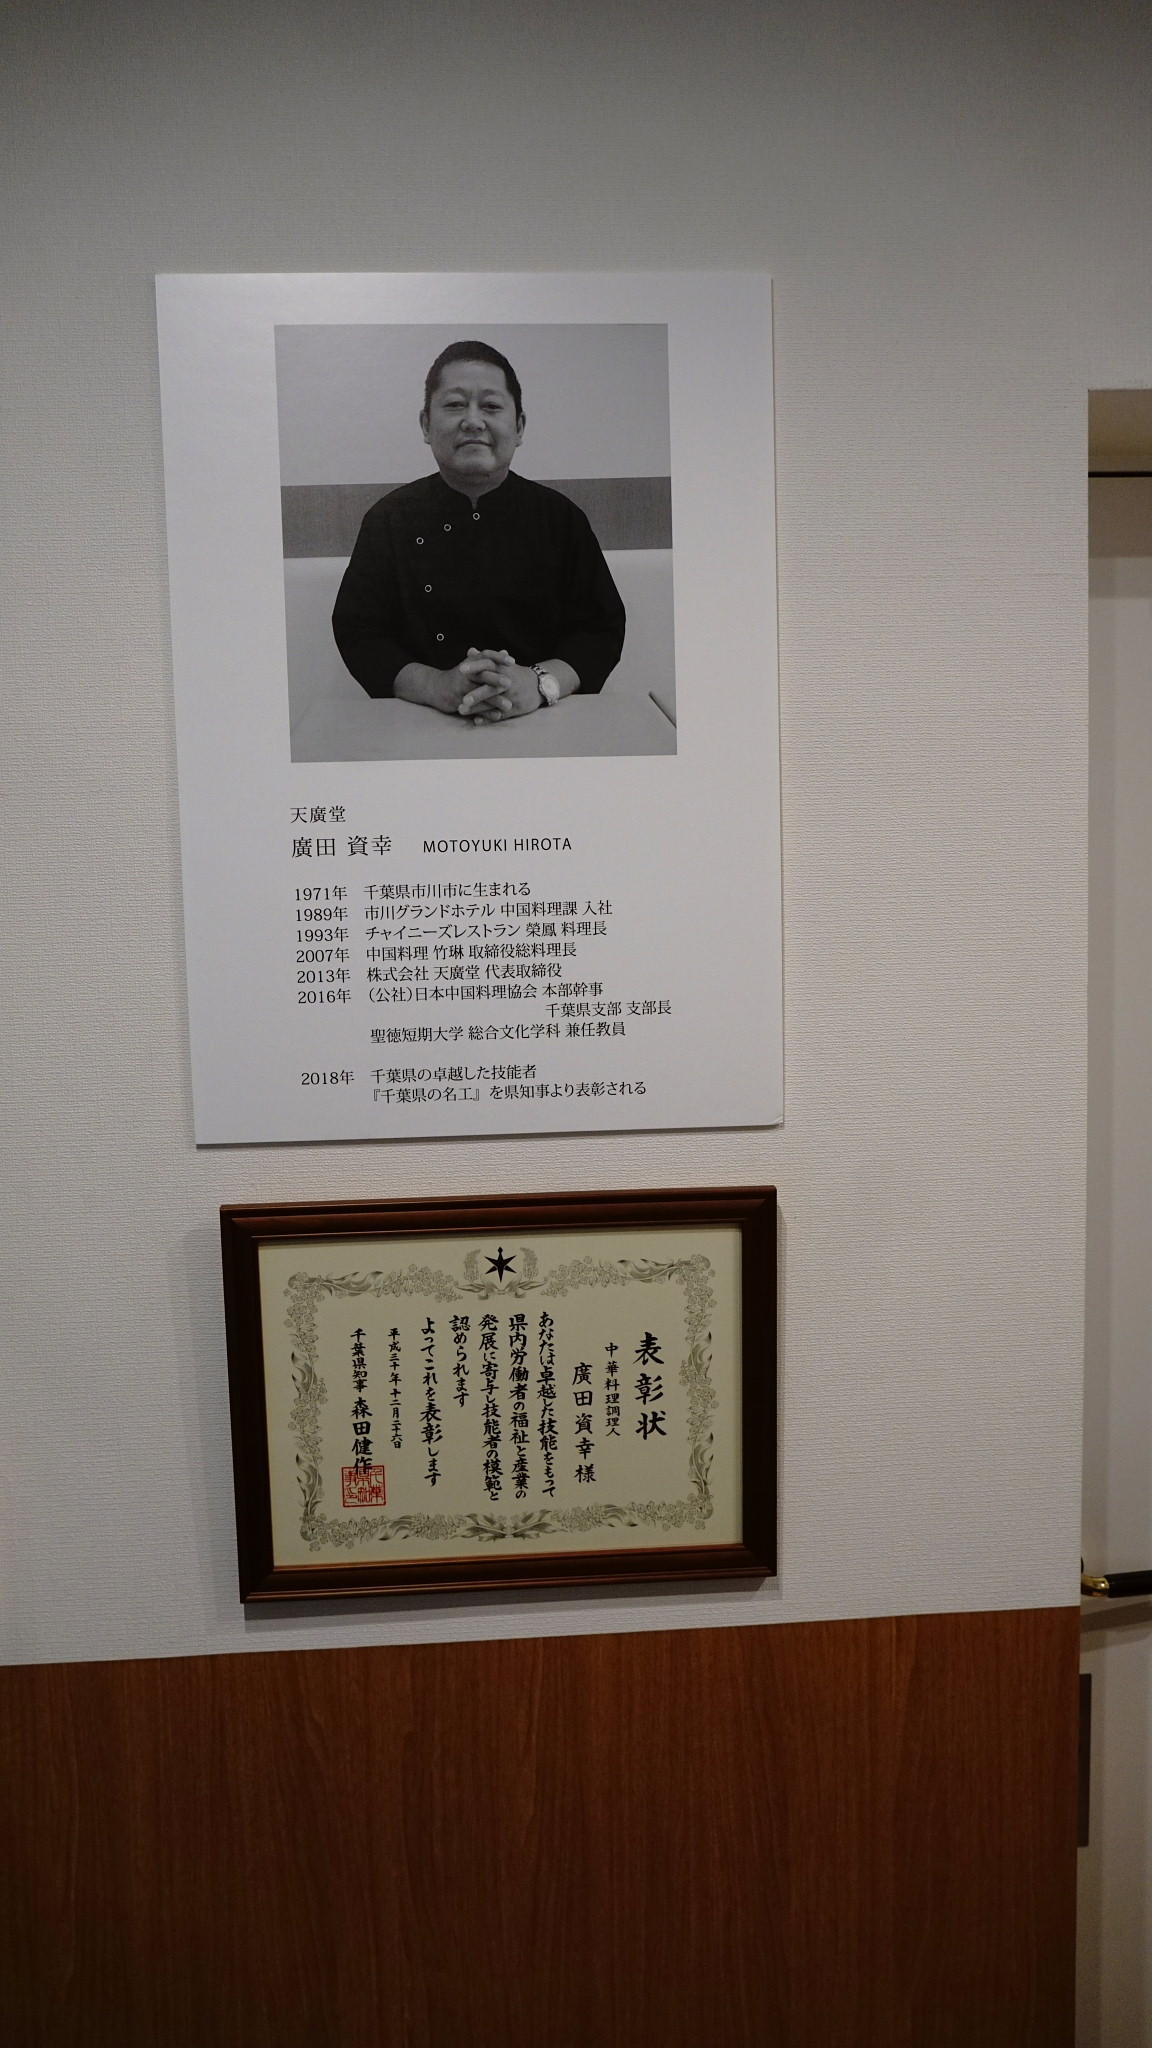 天廣堂
廣田 資幸 MOTOYUKI HIROTA
1971年 千葉県市川市に生まれる
1989年 市川グランドホテル 中国料理課 入社
1993年 チャイニーズレストラン 榮鳳 料理長
2007年 中国料理 竹琳 取締役総料理長
2013年 株式会社 天廣堂 代表取締役
2016年 （公社）日本中国料理協会 本部幹事
千葉県支部 支部長
聖徳短期大学 総合文化学科 兼任教員
2018年 千葉県の卓越した技能者
『千葉県の名工』を県知事より表彰される
表彰状
中華料理調理人
廣田資幸様
あなたは卓越した技能をもって
県内労働者の福祉と産業の
発展に寄与し技能者の模範と
認められます
よってこれを表彰します
平成三十年十二月二十六日
千葉県知事 森田健作